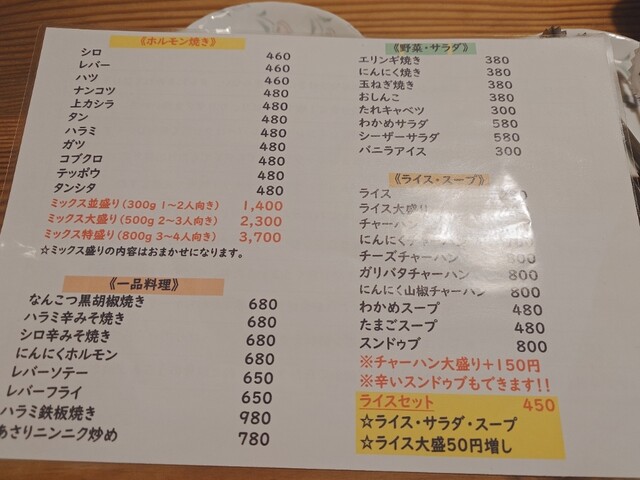 《ホルモン焼き》
シロ 460
レバー 460
ハツ 460
ナンコツ 480
上カシラ 480
タン 480
ハラミ 480
ガツ 480
コブクロ 480
テッポウ 480
タンシタ 480
ミックス並盛り(300g 1〜2人向き) 1,400
ミックス大盛り(500g 2〜3人向き) 2,300
ミックス特盛り(800g 3〜4人向き) 3,700
☆ミックス盛りの内容はおまかせになります。
《一品料理》
なんこつ黒胡椒焼き 680
ハラミ辛みそ焼き 680
シロ辛みそ焼き 680
にんにくホルモン 680
レバーソテー 650
レバーフライ 650
ハラミ鉄板焼き 980
あさりニンニク炒め 780
《野菜・サラダ》
エリンギ焼き 380
にんにく焼き 380
玉ねぎ焼き 380
おしんこ 380
たれキャベツ 300
わかめサラダ 580
シーザーサラダ 580
バニラアイス 300
《ライス・スープ》
ライス
ライス大盛り
チャーハン
にんにくチャーハン
チーズチャーハン 800
ガリバタチャーハン 800
にんにく山椒チャーハン 800
わかめスープ 480
たまごスープ 480
スンドゥブ 800
※チャーハン大盛り+150円
※辛いスンドゥブもできます!!
ライスセット 450
☆ライス・サラダ・スープ
☆ライス大盛50円増し